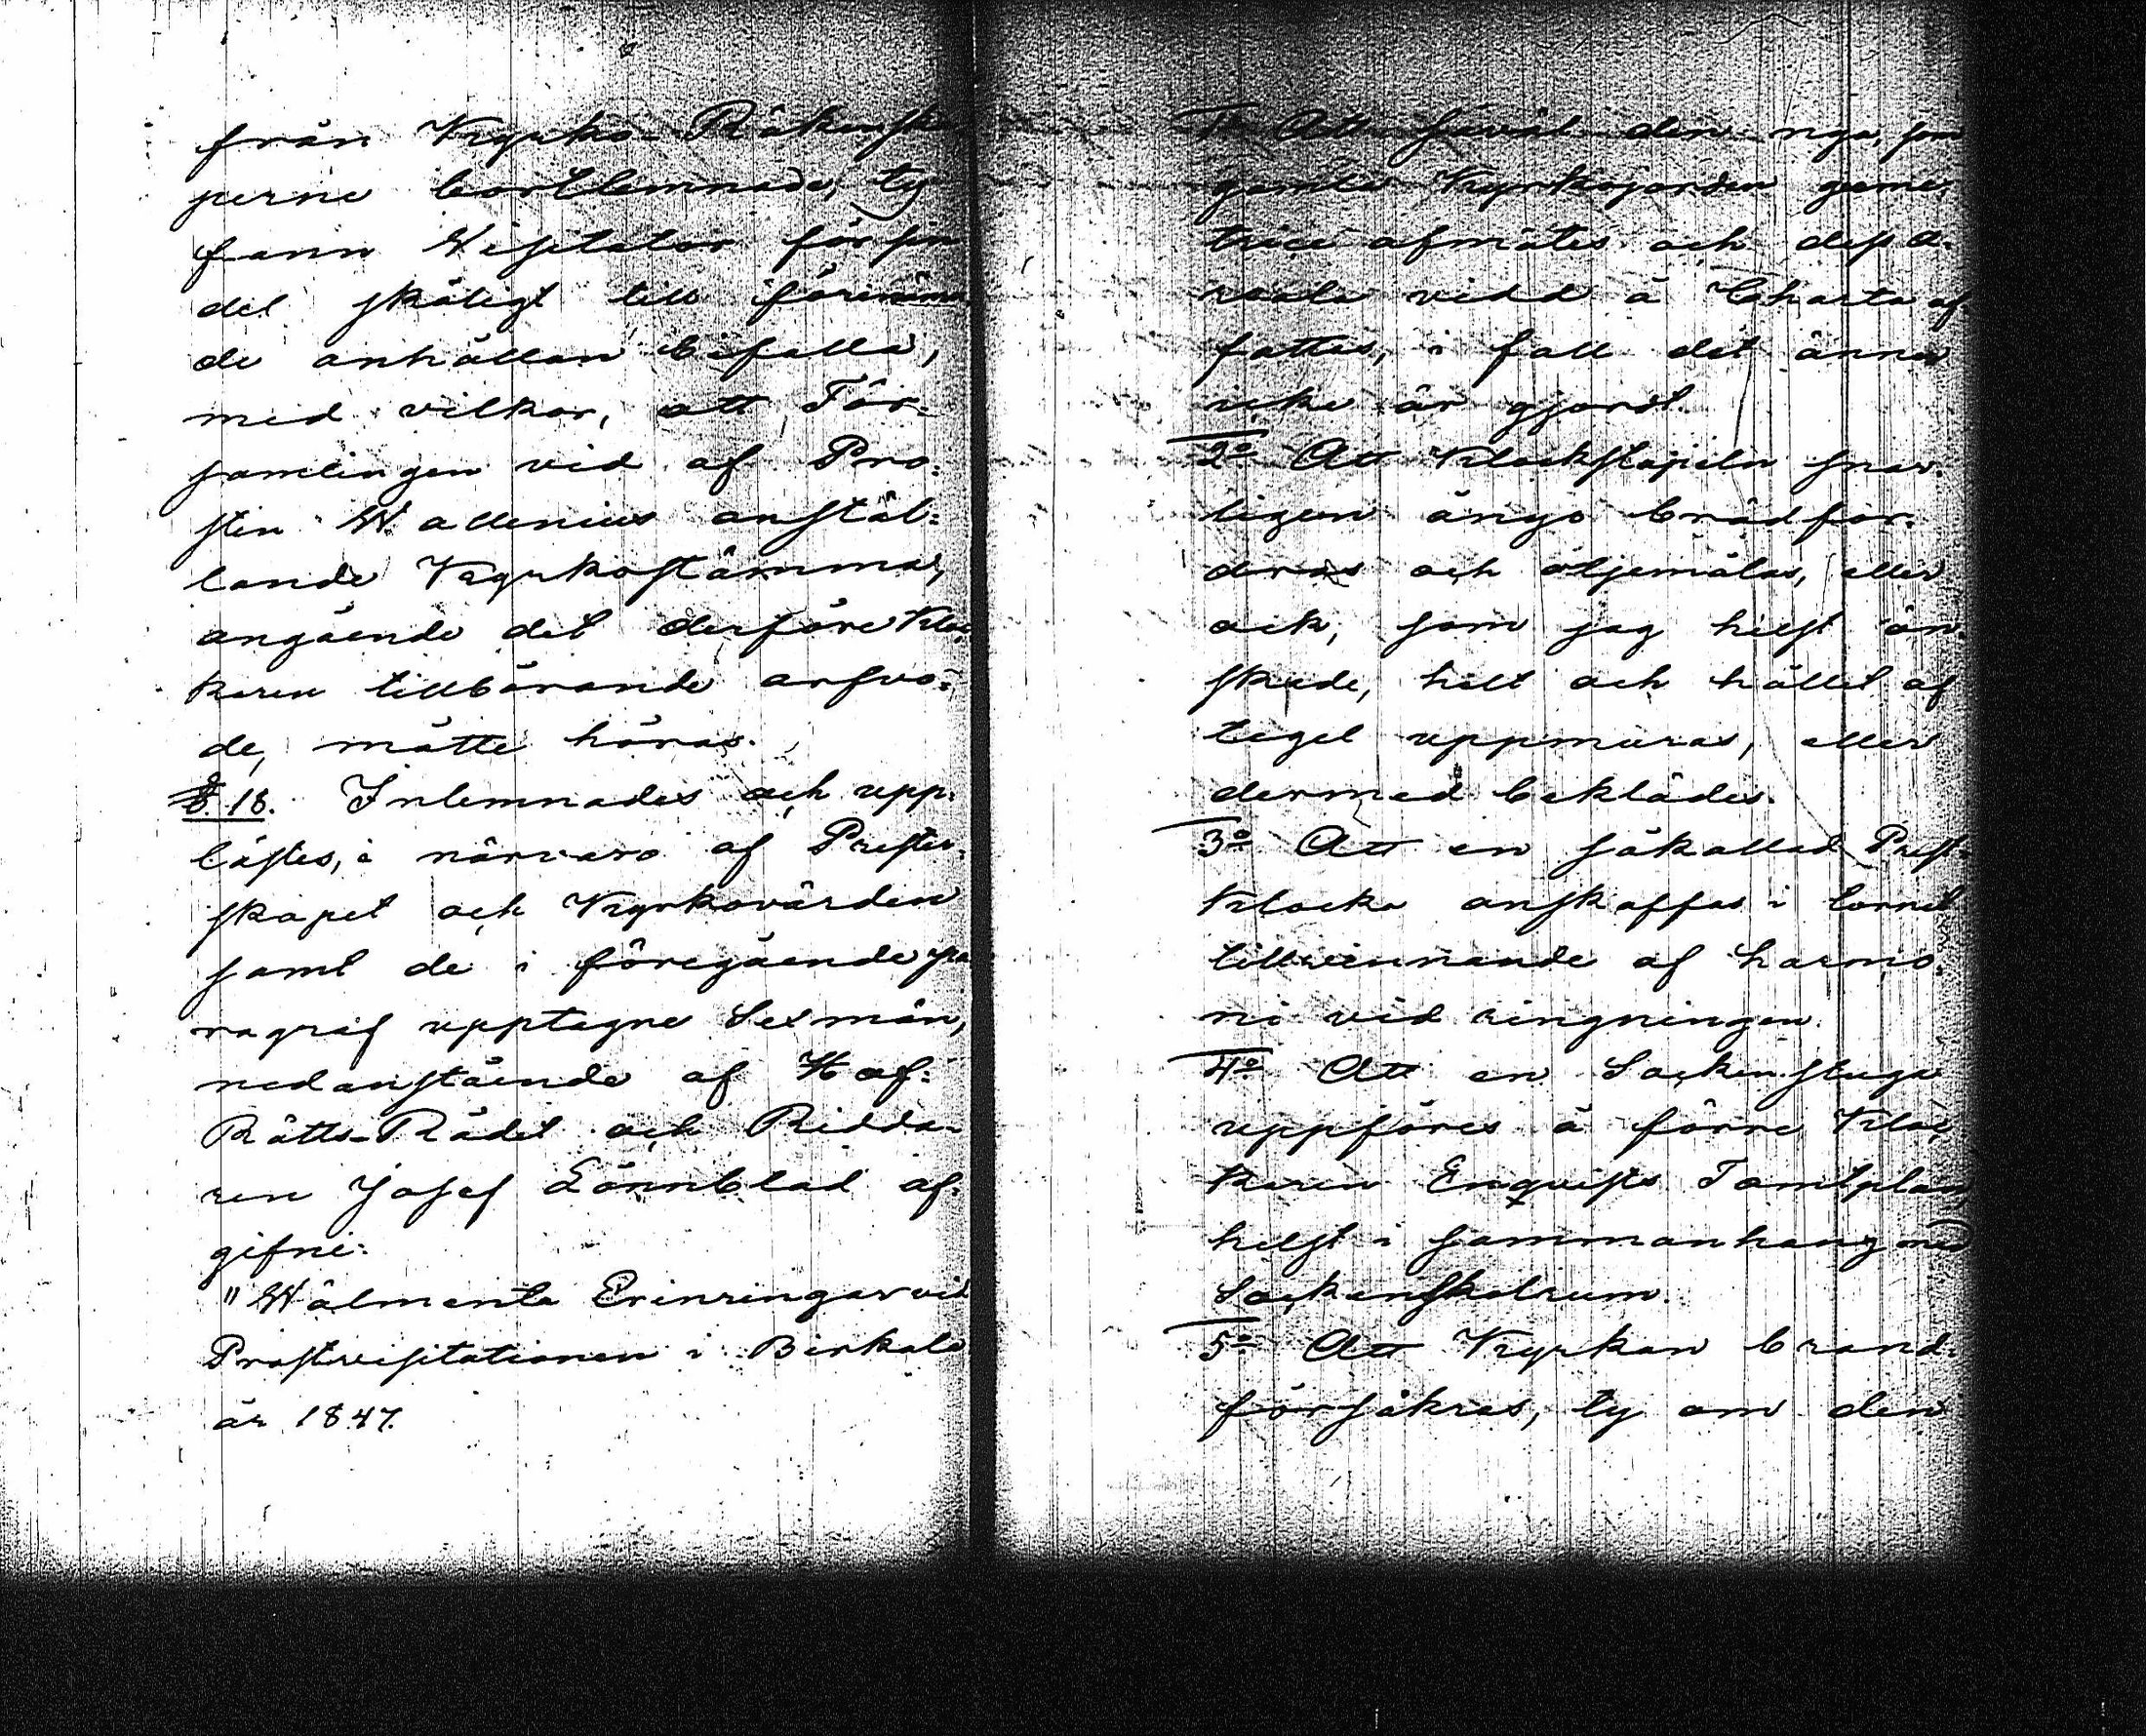 från Kyrko-Räkenska
perne bortlemnade, ty
fann Visitator för sin
del skäligt till förenäm
de anhållan bifalla,
med vilkor, att För-
samlingen vid af Pro-
sten Wallenius anstäl-
lande Kyrkostämma,
angående det derföre Kloc
karen tillbörande arfvo-
de, måtte höras.
§. 18. Inlemnades och upp-
lästes, i närvaro af Prester-
skapet och Kyrkovärden
samt de i föregående pa
ragraf upptagne Sexmän,
nedanstående af Hof-
Rätts-Rådet och Ridda-
ren Josef Lönnblad af-
gifne:
"Wälmenta Erinringar vid
Prostvisitationen i Birkala
år 1847.
1o Att såväl den nya, som
gamla Kyrkojorden geome-
trice afmätes och dess a-
reala vidd å Charta af
fattas, i fall det ännu
icke är gjordt.
2o Att Klockstapeln snar-
ligen ånyo brädfor-
dras och oljemålas, eller
ock, som jag helst ön-
skade, helt och hållet af
tegel uppmuras, eller
dermed beklädes.
3o Att en såkallad Prest-
klocka anskaffas i tornet
tillvinnande af harmo-
ni vid ringningen.
4o Att en Sockenstuga
uppföres å förre Kloc
karen Enqvists Tomtplan,
helst i sammanhang med
Sockenskolrum.
5o Att Kyrkan brand-
försäkras, ty om den